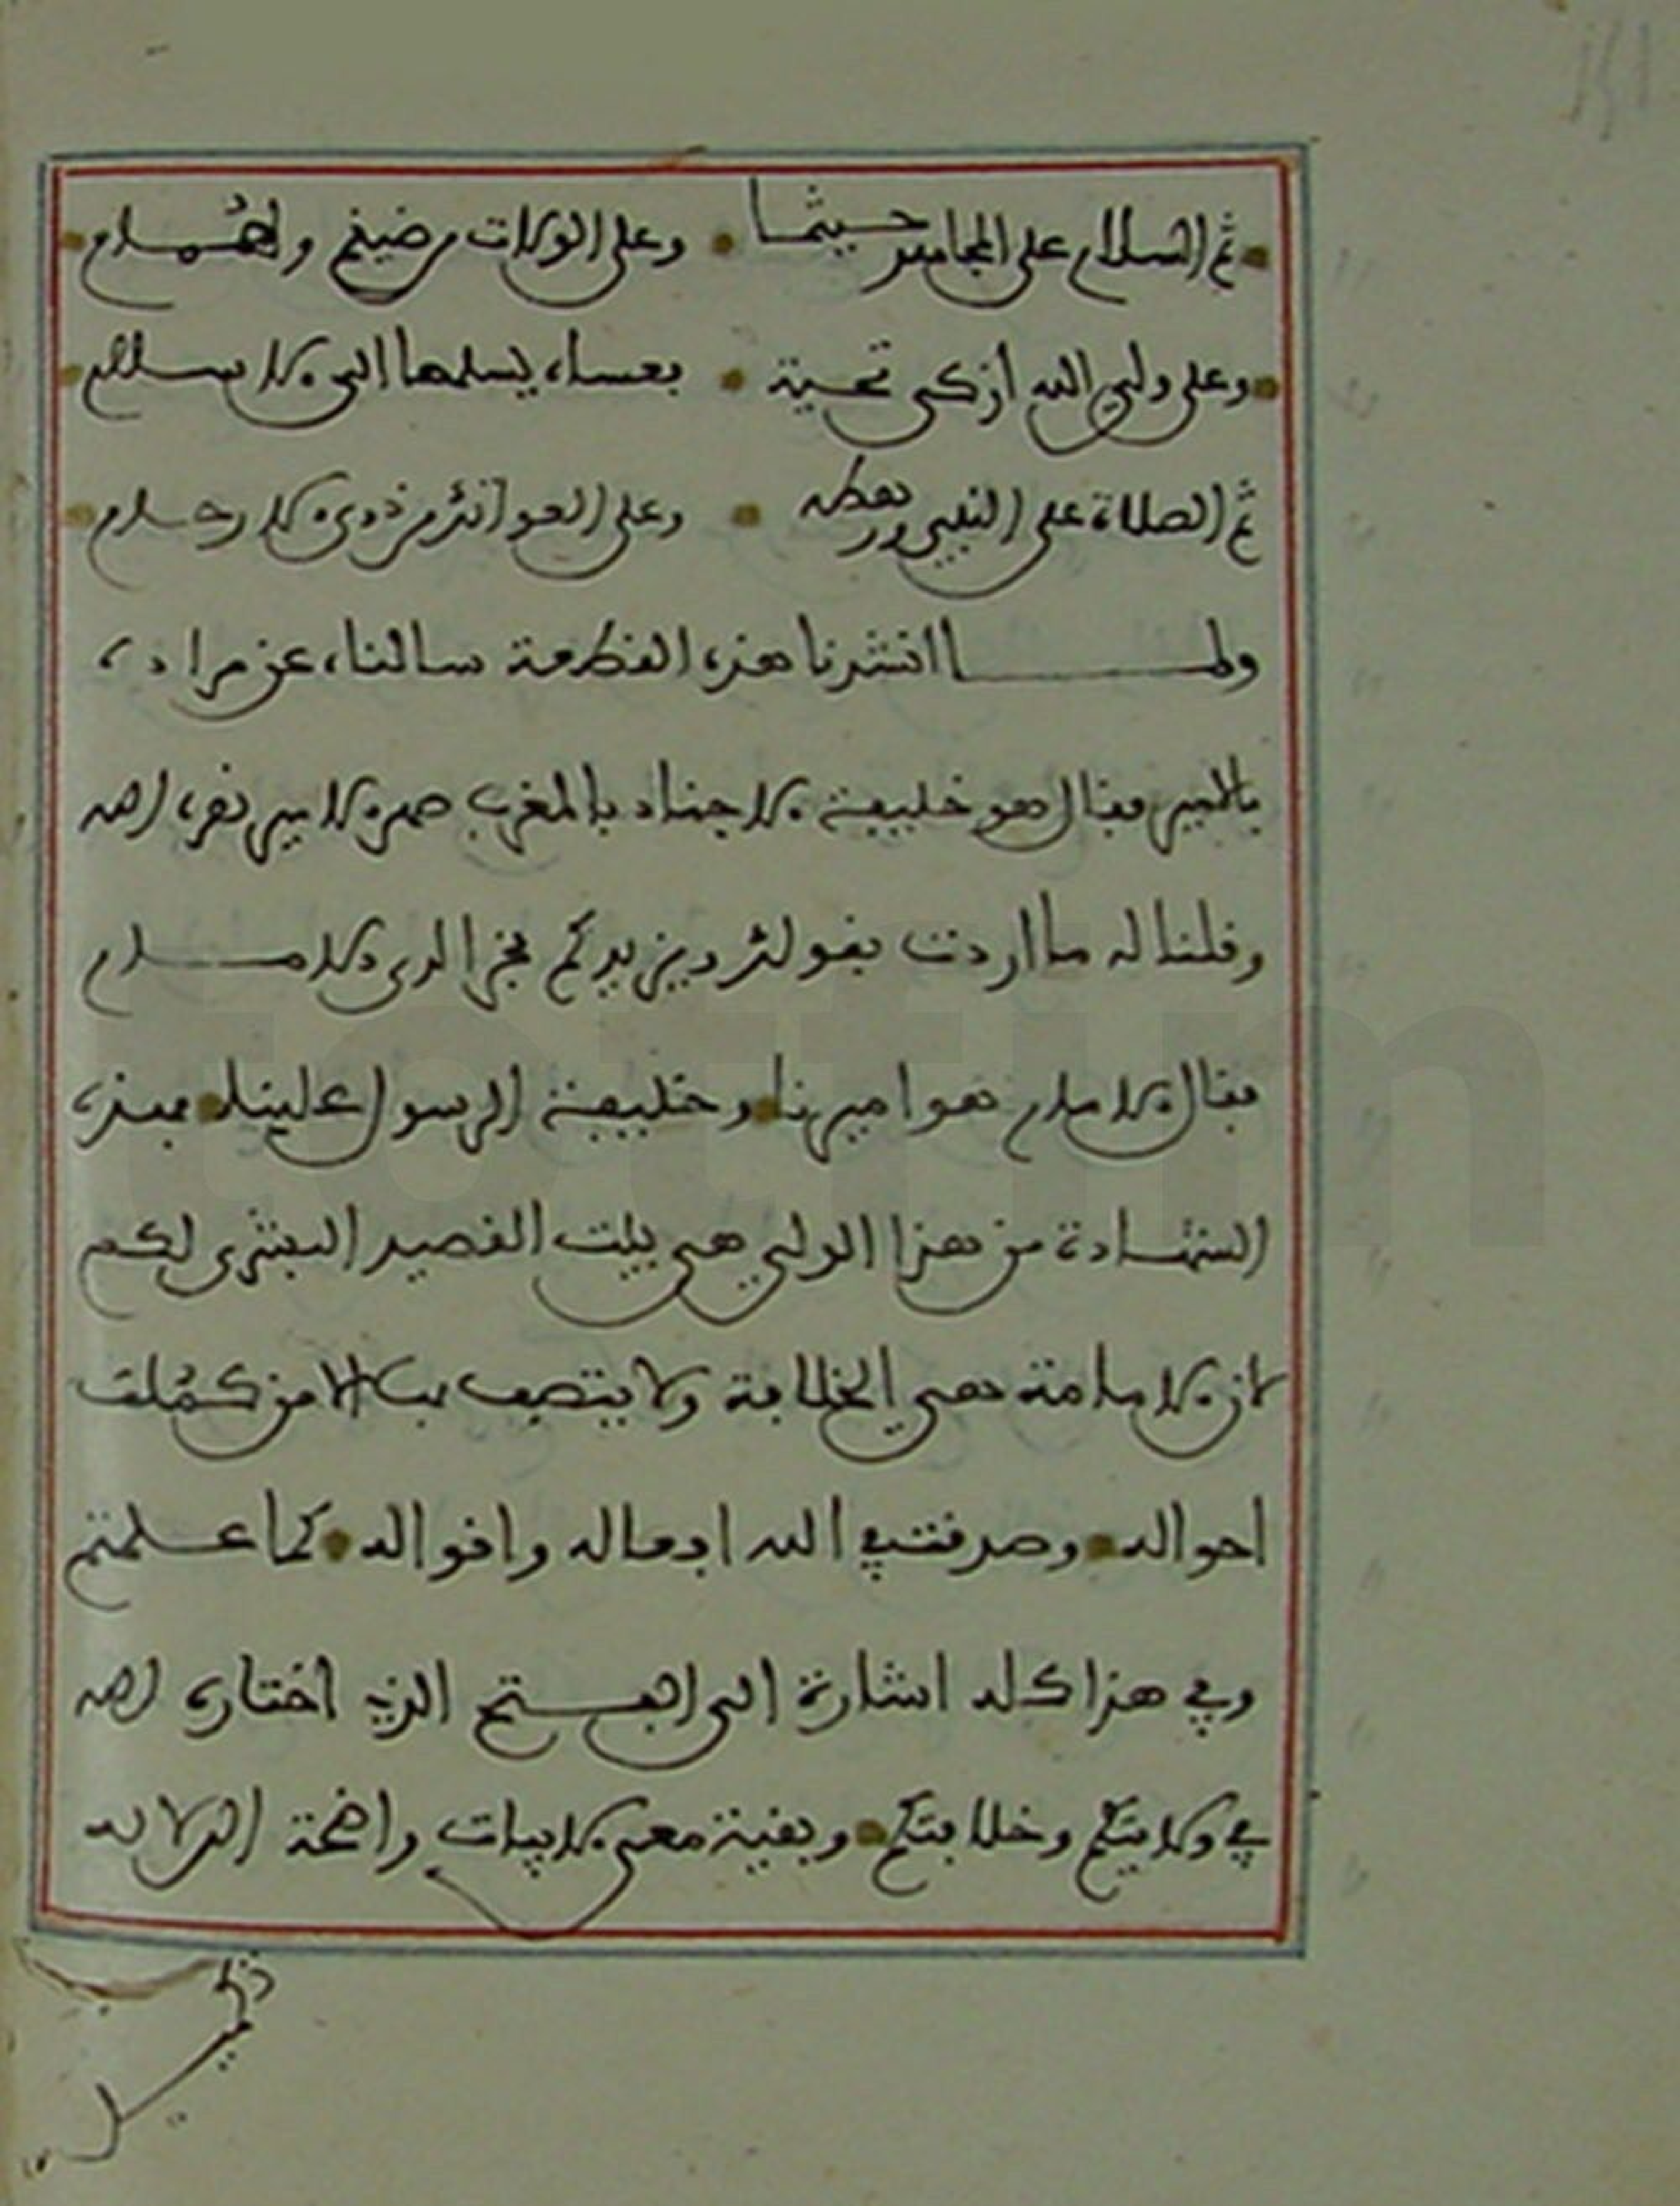 ثم السلام على المجامر حيثما • وعلى الولات رضيعهم •
• وعلى ولي الله أزكى تحية • فعساه يسلمها الى الاسلام •
ثم الصلاة على النبي ورهطه • وعلى العواتق من ذوي الارحام •
ولما انشدنا هذه القطعة سالناه عن مراده
بالمجير فقال هو خليفة الاجناد بالمغرب الامير نصره الله
وقلنا له ما اردت بقولك وين يديكم فخر الدي الامام
فقال الامام هو اميرنا • وخليفة الرسول علينا • فهذه
الشهادة من هذا الولي هي بيت القصيد البشرى لكم
لان الامامة هي الخلافة ولا يتصف بها الا من كملت
احواله • وصدقت في الله افعاله واقواله • كما علمتم
وفي هذا كله اشارة الى الفتح الذي اختاره الله
في ولايتكم وخلافتكم • وبقية معنى الابيات واضحة الدلاله
tottim